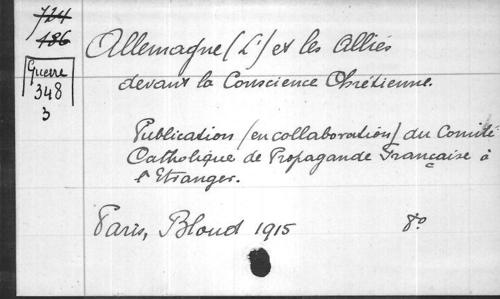 724
186
Guerre
348
3
Allemagne (L') et les Alliés
devant la Conscience Chrétienne.
Publication (en collaboration) du Comité
Catholique de Propagande Française à
l'Etranger.
Paris, Bloud 1915 8o